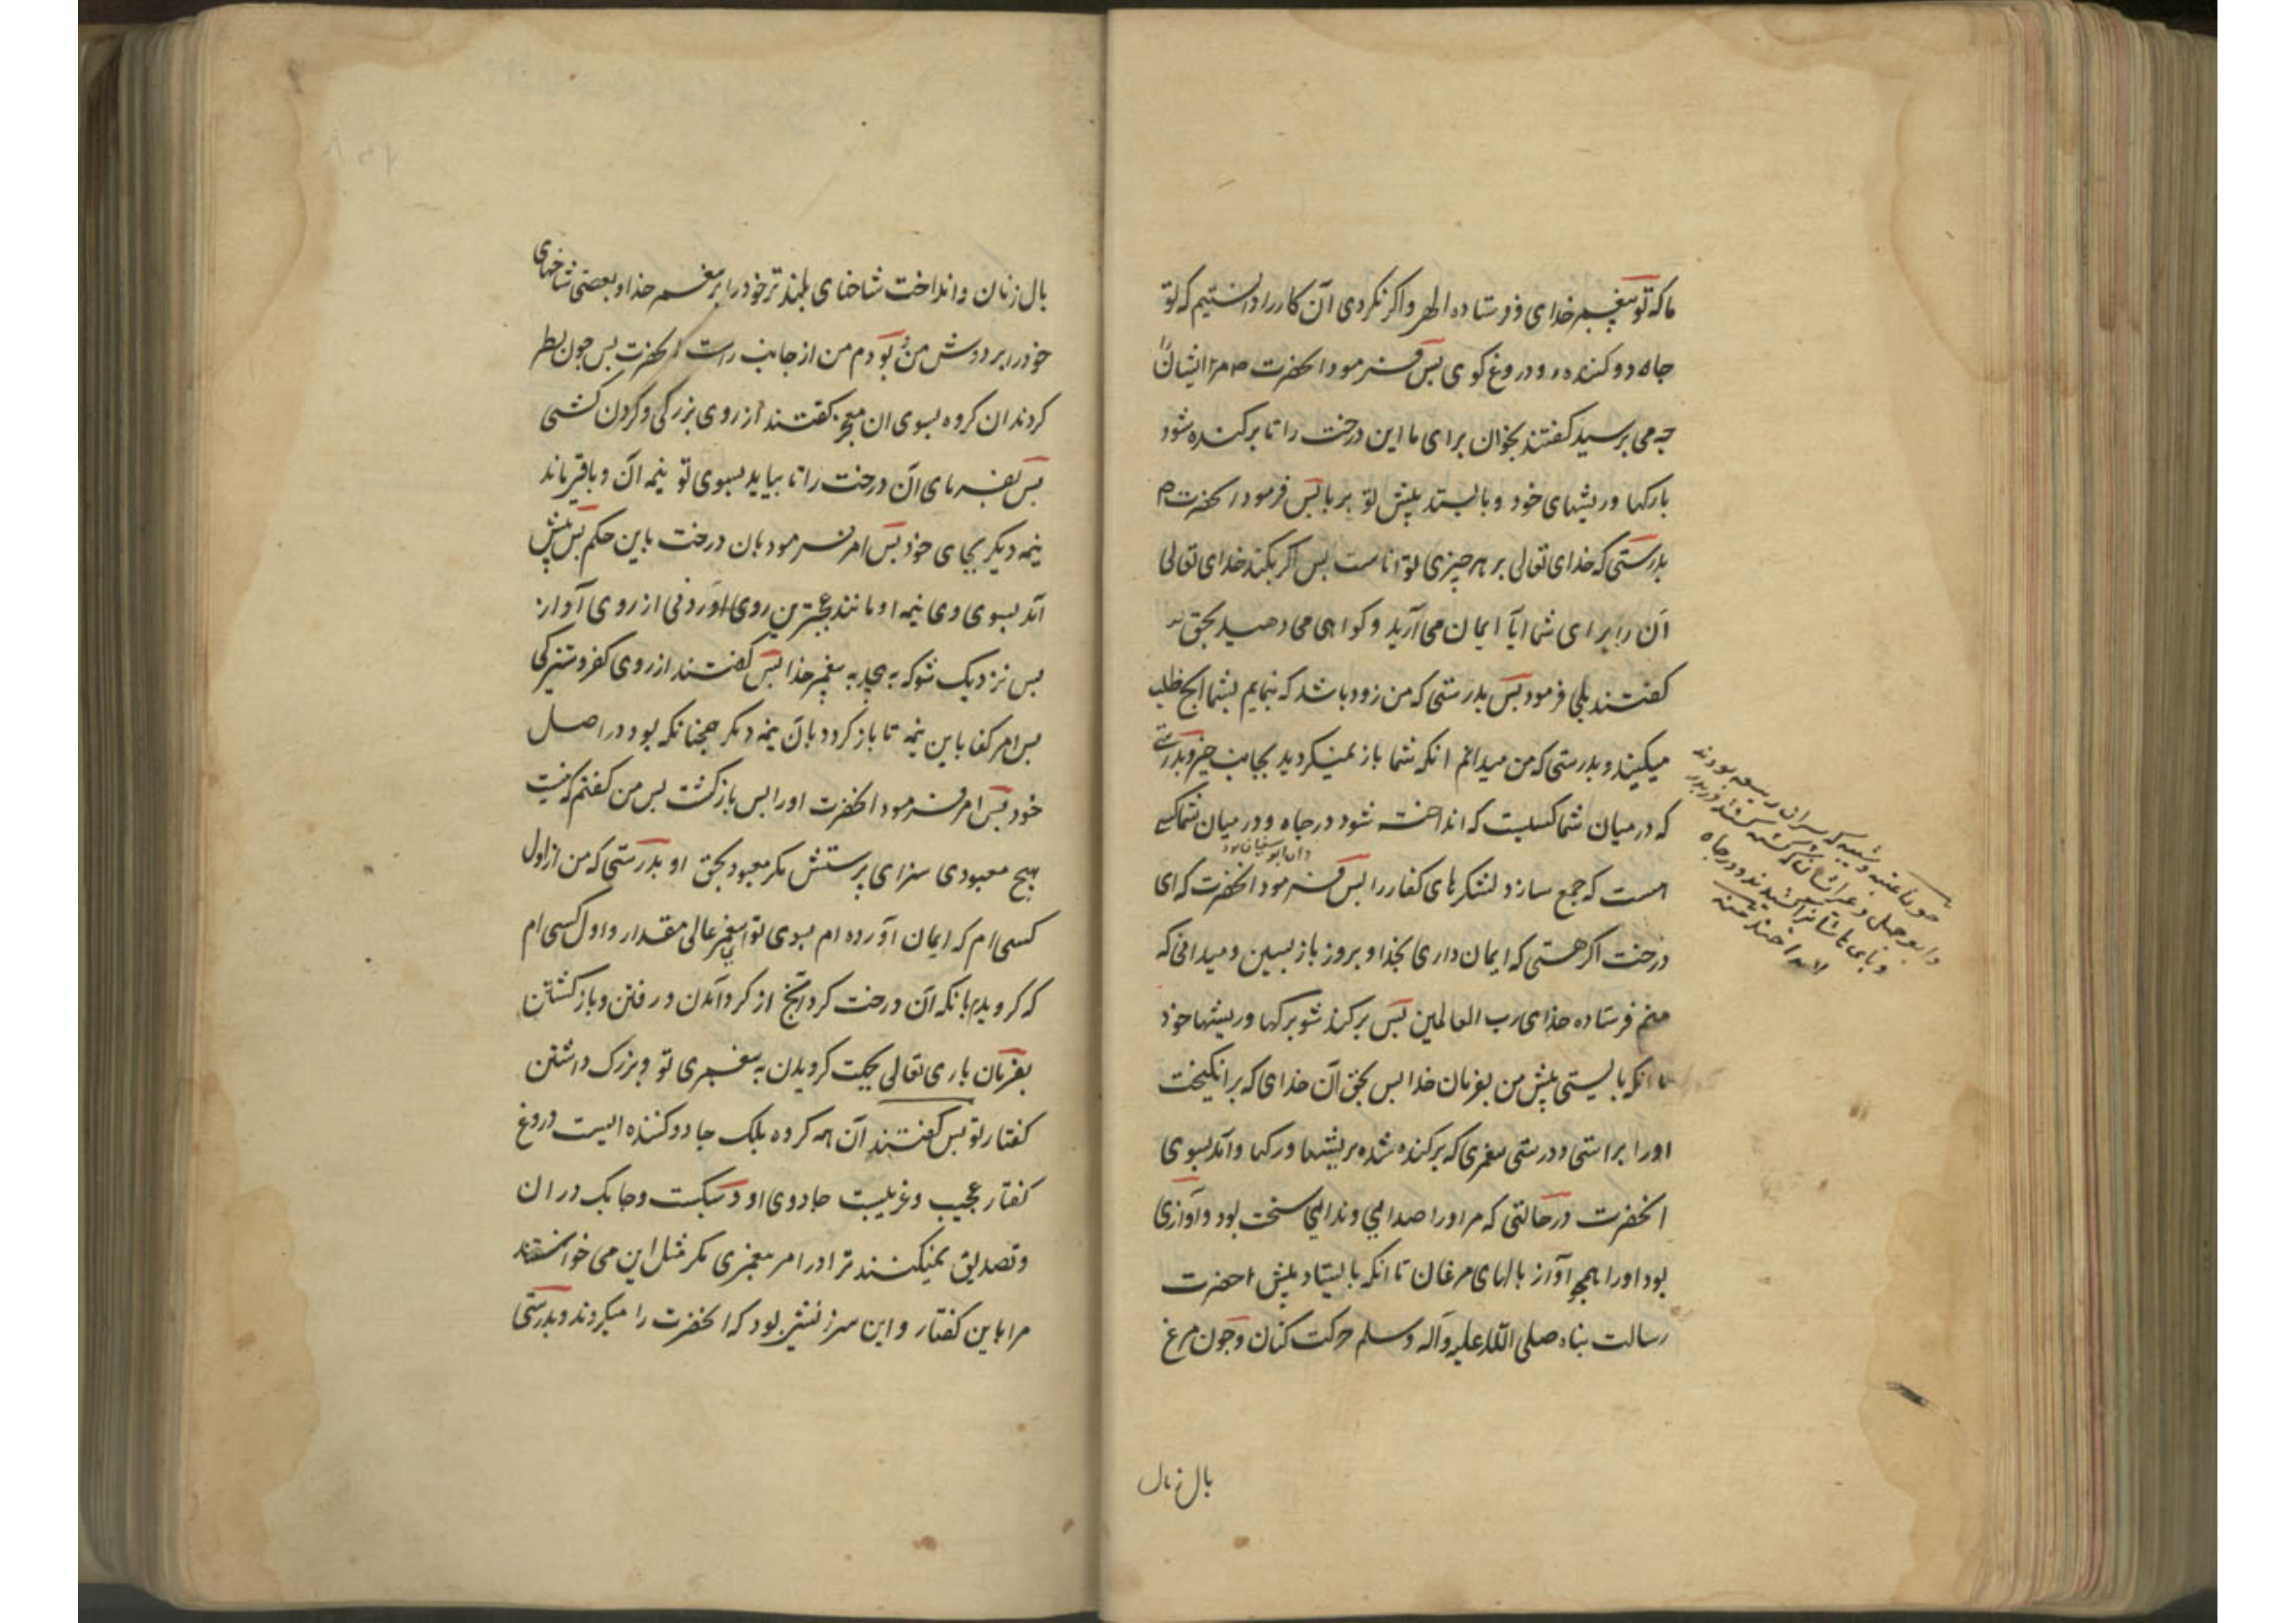 ما که تو پیغمبر خدای و فرستاده الهی و اکر نکردی آن کار را دانستیم که تو
جاه دو کننده و دروغ کوی پس فرمود انحضرت م مر ایشان را
چه می پرسید کفتند بخوان برای ما این درخت را تا برکنده شود
بارکها و ریشهای خود و بایستد پیش تو بر پا پس فرمود انحضرت م
بدرستی که خدای تعالی بر هر چیزی تواناست پس اکر بکند خدای تعالی
آن را برای شما آیا ایمان می آرید و کواهی می دهید بحق
کفتند بلی فرمود پس بدرستی که من زود باشد که بنمایم بشما انچ طلب
میکنید و بدرستی که من میدانم انکه شما باز نمیکردید بجانب خیر و بدرستی
که در میان شما کسیست که انداخته شود در چاه و در میان شما کسی
و ان ابو سفیان بود
است که جمع سازد لشکرهای کفار را پس فرمود انحضرت که ای
درخت اکر هستی که ایمان داری بخدا و بروز باز پسین و میدانی که
منم فرستاده خدای رب العالمین پس برکنده شو برکها و ریشها خود
تا انکه بایستی پیش من بفرمان خدا پس بحق آن خدای که برانکیخت
او را براستی و درستی پیغمبری که برکنده شده بریشها و رکها و آمد بسوی
انحضرت در حالتی که مر او را صدایی و ندایی سخت بود و آوازی
بود او را همچو آواز بالهای مرغان تا انکه بایستاد پیش احضرت
رسالت پناه صلی الله علیه و آله و سلم حرکت کنان و چون مرغ
بال زنان
چون عتبه و شیبه که پسران ربیعه بودند
و ابو جهل و غیر ایشان که کشته کشتند در بدر
و پایهاشان را کشیدند و در چاه
انداختند
بال زنان و انداخت شاخای بلند تر خود را بر پیغمبر خدا و بعضی شاخهای
خود را بر دوش من و بودم من از جانب راست انحضرت پس چون نظر
کردند ان کروه بسوی ان معجزه کفتند از روی بزرکی و کردن کشی
پس بفرمای آن درخت را تا بیاید بسوی تو نیمه آن و باقی ماند
نیمه دیکر بجای خود پس امر فرمود بان درخت باین حکم پس پیش
آمد بسوی وی نیمه او مانند عجبترین روی آوردنی از روی آواز
پس نزدیک شد که به پیچد به پیغمبر خدا پس کفتند از روی کفر و ستیزکی
پس امر کن باین نیمه تا باز کردد بان نیمه دیکر همچنانکه بود در اصل
خود پس امر فرمود انحضرت او را پس بازکشت پس من کفتم که نیست
هیچ معبودی سزای پرستش مکر معبود بحق او بدرستی که من از اول
کسی ام که ایمان آورده ام بسوی تو ای پیغمبر عالی مقدار و اول کسی ام
که کرویدم بانکه آن درخت کرد انچ از کرد آمدن و رفتن و بازکشتن
بفرمان باری تعالی بجهت کرویدن به پیغمبری تو و بزرک داشتن
کفتار تو پس کفتند آن همه کروه بلک جا دو کننده ایست دروغ
کفتار عجیب و غریبست جادوی او و سبکست و چابک در ان
و تصدیق نمیکنند ترا در امر پیغمبری مکر مثل این می خواستند
مرا باین کفتار و این سرزنش بود که انحضرت را میکردند و بدرستی